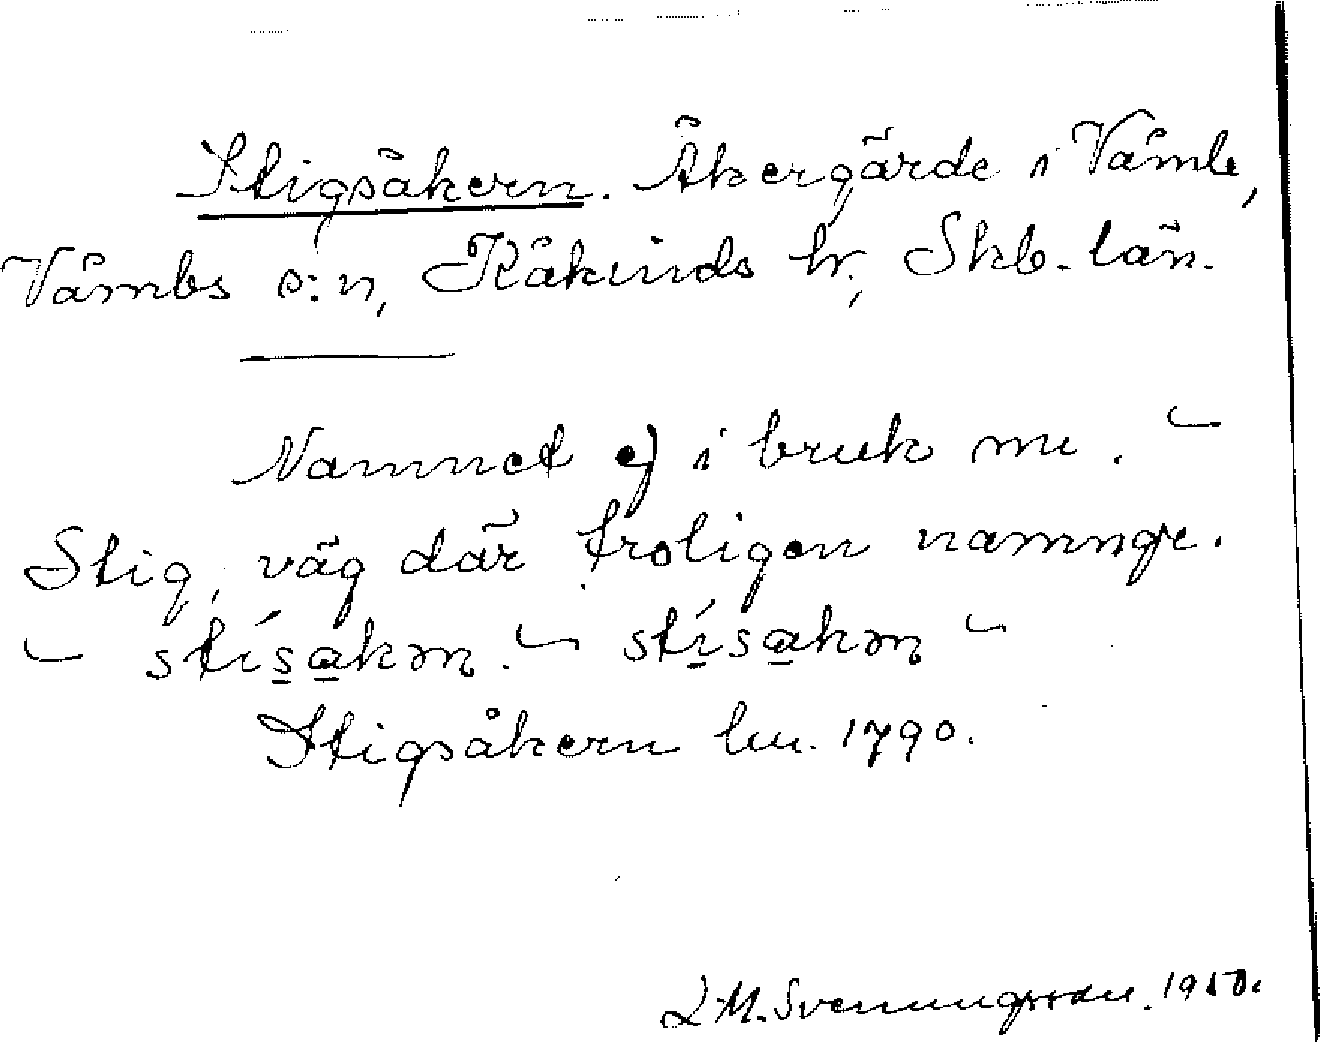 Stigsåkern. Åkergärde i Våmb,
Våmbs s:n, Kåkinds hr, Skb. län.
Namnet ej i bruk nu. –
Stig, väg där troligen namnge.
– stísakən. – stísakən –
Stigsåkern lm. 1790.
L M. Svenungsson. 1950.